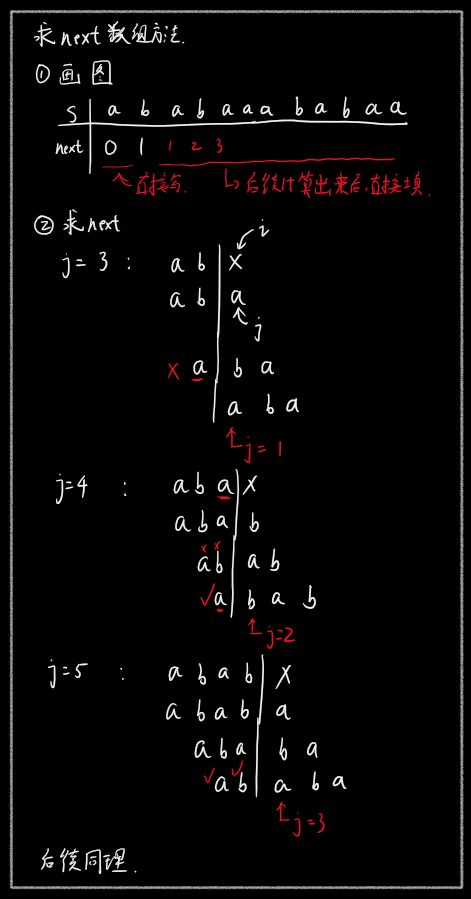 求next数组方法.
① 画图
S a b a b a a a b a b a a
next 0 1 1 2 3
直接写 后续计算出来后,直接填.
② 求next
i
j = 3 : a b x
a b a
j
x a b a
a b a
j = 1
j=4 : a b a x
a b a b
x x
a b a b
✓ a b a b
j=2
j=5 : a b a b x
a b a b a
a b a b a
✓ ✓
a b a b a
j=3
后续同理.